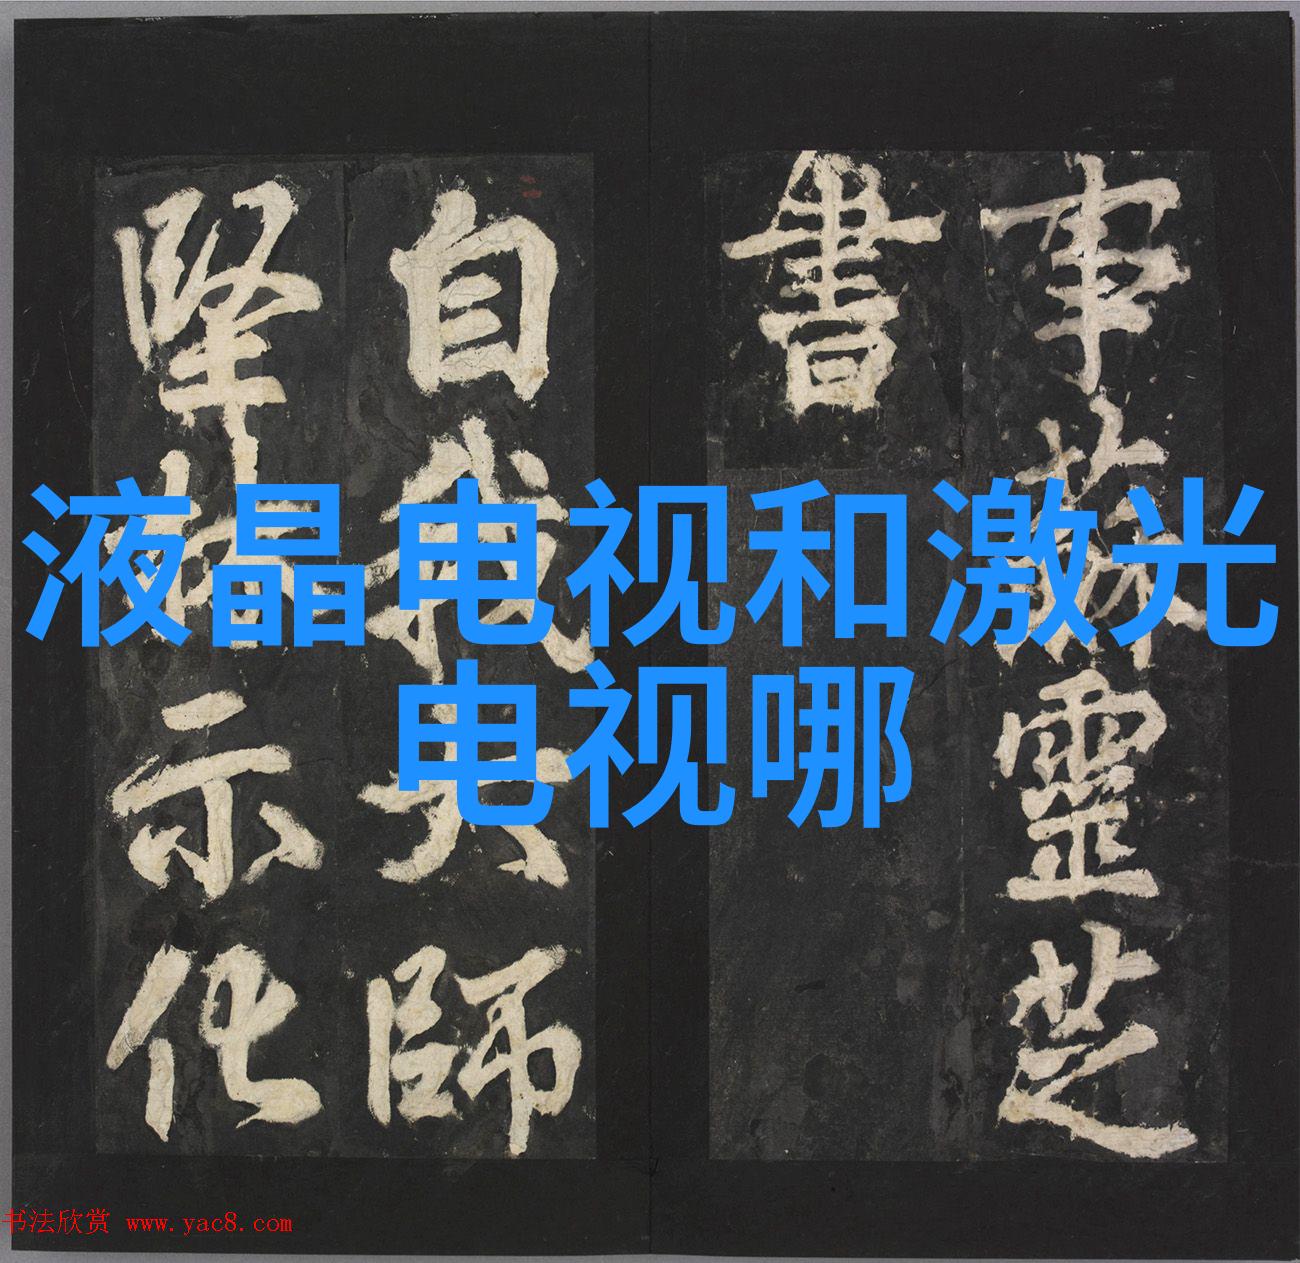 事蘇靈芝
書
自我大師
示化
液晶电视和激光
电视哪
书法欣赏 www.yac8.com